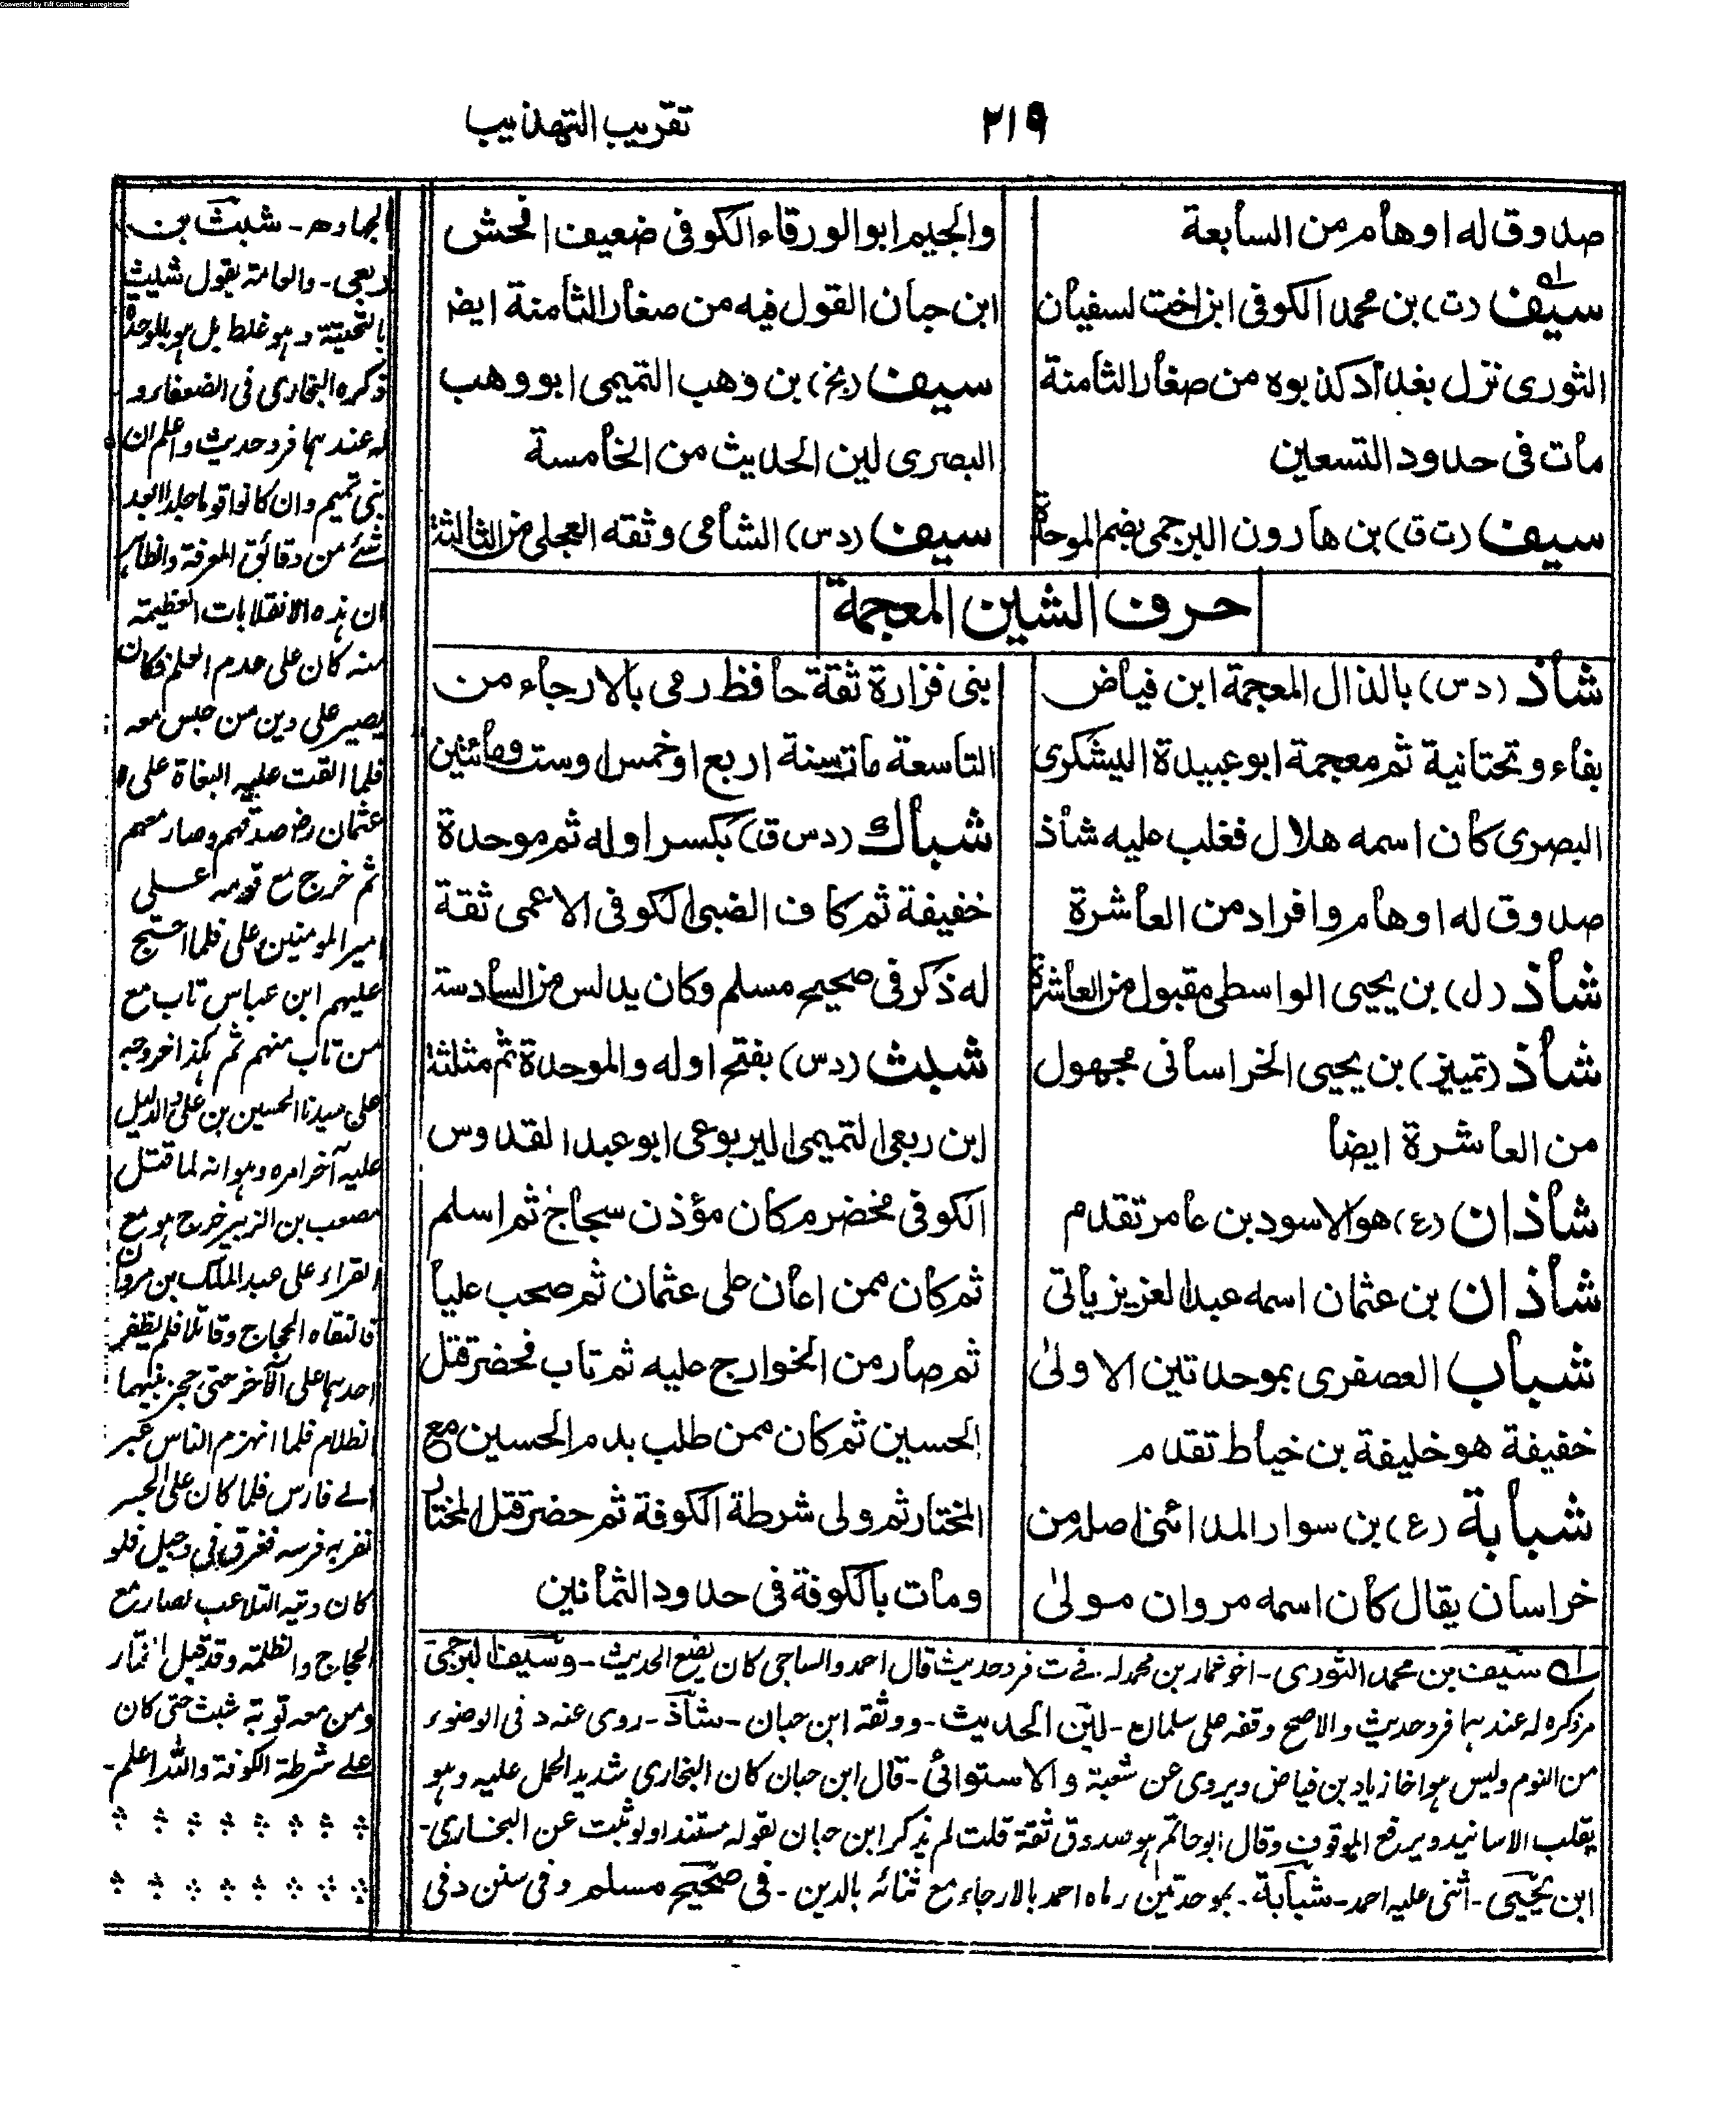 Converted by Tiff Combine - unregistered
٢١٩
تقريب التهذيب
صدوق له اوهام من السابعة
سيف (ت) بن محمد الكوفى ابن اخت لسفيان
الثورى نزل بغداد كذبوه من صغار الثامنة
مات فى حدود التسعين
سيف (ت ق) بن هارون البرجمى بضم الموحدة
والجيم ابو الورقاء الكوفى ضعيف افحش
ابن حبان القول فيه من صغار الثامنة ايضا
سيف (بخ) بن وهب التميمى ابو وهب
البصرى لين الحديث من الخامسة
سيف (د س) الشامى وثقه العجلى من الثالثة
حرف الشين المعجمة
شاذ (د س) بالذال المعجمة ابن فياض
بفاء وتحتانية ثم معجمة ابو عبيدة اليشكرى
البصرى كان اسمه هلال فغلب عليه شاذ
صدوق له اوهام وافراد من العاشرة
شاذ (ل) بن يحيى الواسطى مقبول من العاشرة
شاذ (تمييز) بن يحيى الخراسانى مجهول
من العاشرة ايضا
شاذان (ع) هو الاسود بن عامر تقدم
شاذان بن عثمان اسمه عبد العزيز ياتى
شباب العصفرى بموحدتين الاولى
خفيفة هو خليفة بن خياط تقدم
شبابة (ع) بن سوار المدائنى اصله من
خراسان يقال كان اسمه مروان مولى
بنى فزارة ثقة حافظ رمى بالارجاء من
التاسعة مات سنة اربع او خمس او ست ومائتين
شباك (د س ق) بكسر اوله ثم موحدة
خفيفة ثم كاف الضبى الكوفى الاعمى ثقة
له ذكر فى صحيح مسلم وكان يدلس من السادسة
شبث (د س) بفتح اوله والموحدة ثم مثلثة
ابن ربعى التميمى اليربوعى ابو عبد القدوس
الكوفى مخضرم كان مؤذن سجاح ثم اسلم
ثم كان ممن اعان على عثمان ثم صحب عليا
ثم صار من الخوارج عليه ثم تاب فحضر قتل
الحسين ثم كان ممن طلب بدم الحسين مع
المختار ثم ولى شرطة الكوفة ثم حضر قتل المختار
ومات بالكوفة فى حدود الثمانين
سيف بن محمد الثورى - اخو عمار بن محمد له فى ت فرد حديث قال احمد والساجى كان يضع الحديث - وسيف البرجمى
ذكره له عندهما فرد حديث والاصح وقفه على سلمان - لين الحديث - ووثقه ابن حبان - شاذ - روى عنه د فى الوضوء
من النوم وليس هو اخا زياد بن فياض ويروى عن شعبة والاستوائى - قال ابن حبان كان البخارى شديد الحمل عليه وهو
يقلب الاسانيد ويرفع الموقوف وقال ابو حاتم هو صدوق ثقة قلت لم يذكر ابن حبان لقوله مستندا ولو ثبت عن البخارى -
ابن يحيى - اثنى عليه احمد - شبابة - بموحدتين رماه احمد بالارجاء مع ثنائه بالدين - فى صحيح مسلم وفى سنن د فى
الجهاد - شبث بن
ربعى - والعامة يقول شيث
بالتحتية وهو غلط بل هو بالموحدة
ذكره البخارى فى الضعفاء و
له عندهما فرد حديث واعلم ان
بنى تميم وان كانوا قوما جلدا ابعد
شئ من دقائق المعرفة والظاهر
ان هذه الانقلابات العظيمة
منه كان على عدم العلم فكان
يصير على دين من جلس معه
فلما القت عليه البغاة على
عثمان رض صدقهم وصار معهم
ثم خرج مع قومه على
امير المومنين على فلما احتج
عليهم ابن عباس تاب مع
من تاب منهم ثم هكذا خروجه
على سيدنا الحسين بن على والدليل
عليه آخر امره وهو انه لما قتل
مصعب بن الزبير خرج هو مع
القراء على عبد الملك بن مروان
فالتقاه الحجاج وقاتلا فلم يظفر
احدهما على الآخر حتى حجز بينهما
الظلام فلما انهزم الناس عبر
الے فارس فلما كان على الجسر
نفر به فرسه فغرق فى دجيل فلو
كان دينه التلاعب لصار مع
الحجاج والظلمة وقد قيل
ومن معه توبة شبث حتى كان
على شرطة الكوفة والله اعلم -